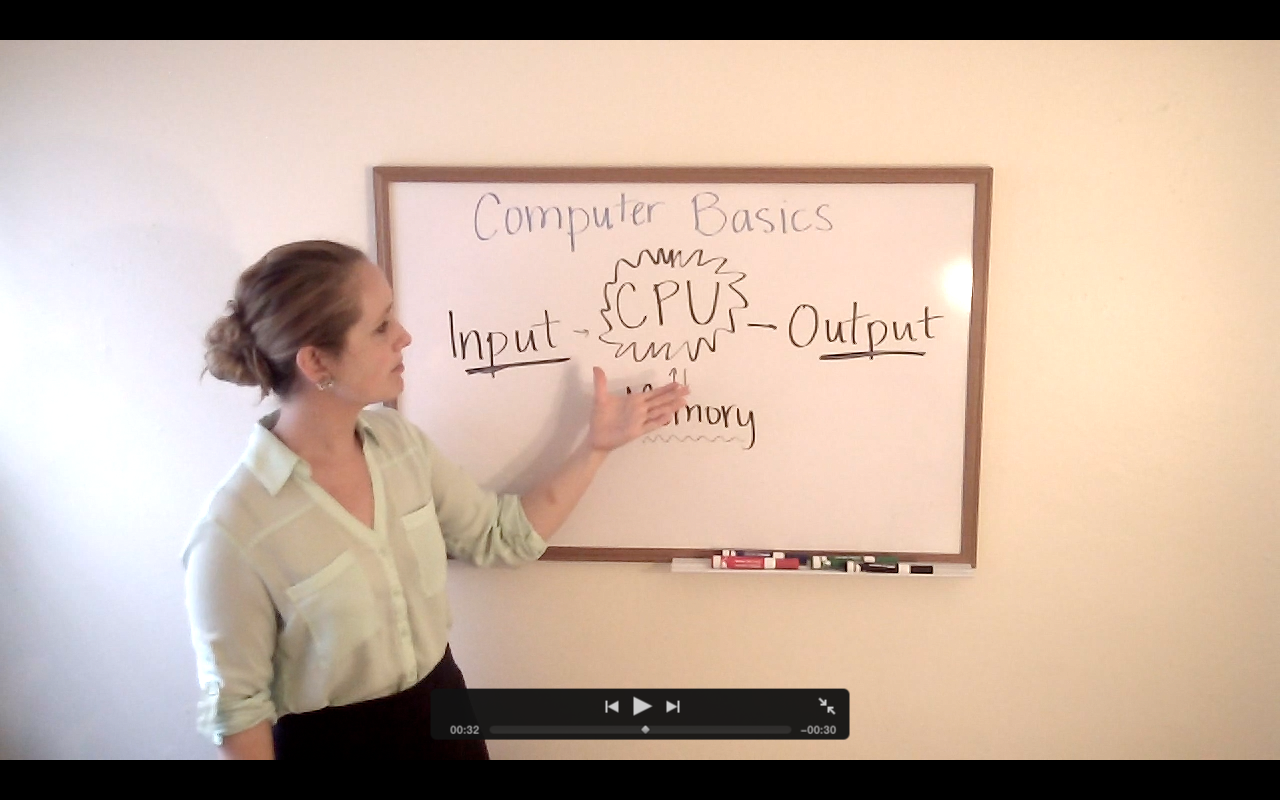 Computer Basics
Input CPU Output
Memory
00:32 -00:30